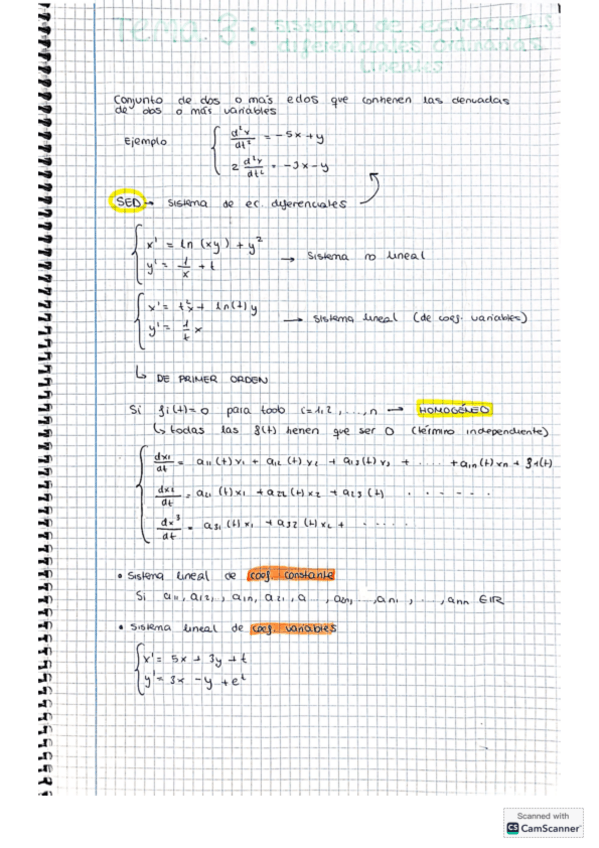 TEMA 3: sistema de ecuaciones
diferenciales ordinarias
lineales
Conjunto de dos o más edos que contienen las derivadas
de dos o más variables
Ejemplo { d²x/dt² = -5x + y
2 d²y/dt² = -3x - y
SED → Sistema de ec. diferenciales
{ x' = ln (xy) + y²
y' = 1/x + t → Sistema no lineal
{ x' = t²x + ln(t)y
y' = 1/t x → Sistema lineal (de coef. variables)
↳ DE PRIMER ORDEN
Si fi(t)=0 para todo i=1,2,...,n → HOMOGÉNEO
↳ todas las f(t) tienen que ser 0 (término independiente)
{ dx1/dt = a11(t)x1 + a12(t)x2 + a13(t)x3 + ..... + a1n(t)xn + f1(t)
dx2/dt = a21(t)x1 + a22(t)x2 + a23(t) ......
dx³/dt = a31(t)x1 + a32(t)x2 + .....
• Sistema lineal de coef. constante
Si a11, a12, , a1n, a21, a , a2n, ..., an1, ..., ann ∈ IR
• Sistema lineal de coef. variables
{ x' = 5x + 3y + t
y' = 3x - y + e^t
Scanned with
CS CamScanner